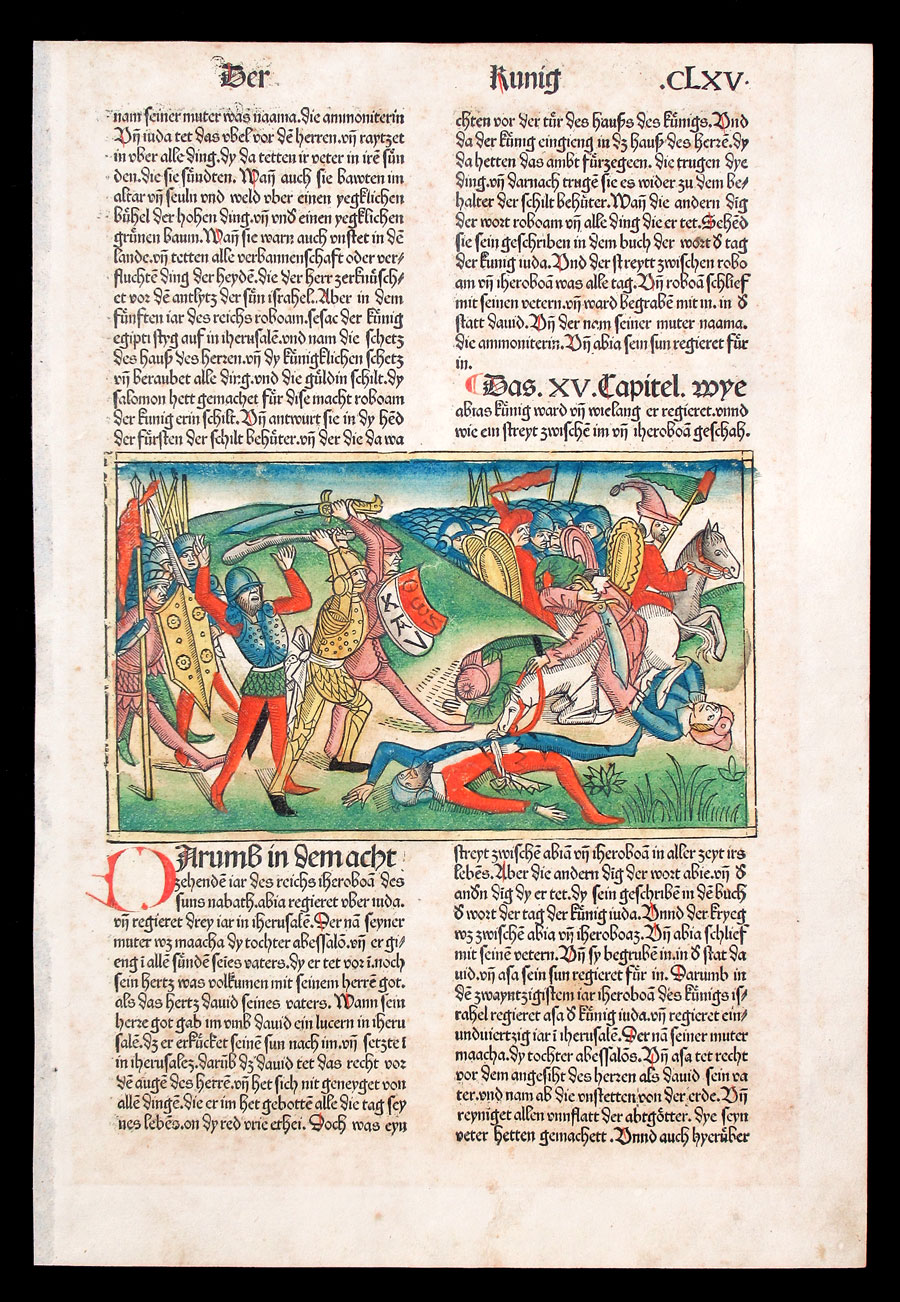 Der Kunig .CLXV.
nam seiner muter was naama.die ammoniterin
Vñ iuda tet das vbel vor dẽ herren.vñ raytzet
in vber alle ding.dy da tetten ir veter in irẽ sün
den.die sie sündten. Wañ auch sie bawten im
altar vñ seuln vnd weld vber einen yegklichen
bühel der hohen ding.vñ vnd einen yegklichen
grünen baum.Wañ sie warn auch vnstet in dẽ
lande.vñ tetten alle verbannenschaft oder ver⸗
fluchtẽ ding der heydẽ.die der herr zerknüsch⸗
et vor dẽ antlytz der sün israhel.Aber in dem
fünften iar des reichs roboam.sesac der künig
egipti styg auf in iherusalẽ.vnd nam die schetz
des hauß des herren.vñ dy künigklichen schetz
vñ beraubet alle ding.vnd die güldin schilt.dy
salomon hett gemachet für dise macht roboam
der kunig erin schilt. Vñ antwurt sie in dy hẽd
der fürsten der schilt behüter.vñ der die da wa
chten vor der tür des hauß des künigs. Vnd
da der künig eingieng in dz hauß des herrẽ.dy
da hetten das ambt fürzegeen. die trugen dye
ding.vñ darnach trugẽ sie es wider zu dem be⸗
halter der schilt behüter.Wañ die andern dig
der wort roboam vñ alle ding die er tet.Sehẽd
sie sein geschriben in dem buch der wort d tag
der kunig iuda. Vnd der streytt zwischen robo
am vñ iheroboã was alle tag. Vñ roboã schlief
mit seinen vetern.vñ ward begrabẽ mit in. in d
statt dauid. Vñ der nam seiner muter naama.
die ammoniterin. Vñ abia sein sun regieret für
in.
Das. XV. Capitel. wye
abias künig ward vñ wielang er regieret.vnnd
wie ein streyt zwischẽ im vñ iheroboã geschah.
DArumb in dem acht
zehenden iar des reichs iheroboã des
suns nabath.abia regieret vber iuda.
vñ regieret drey iar in iherusalẽ. Der nã seyner
muter wz maacha dy tochter abessalõ.vñ er gi⸗
eng ĩ allẽ sündẽ seĩes vaters.dy er tet vor ĩ.noch
sein hertz was volkumen mit seinem herrẽ got.
als das hertz dauid seines vaters. Wann sein
herre got gab im vmb dauid ein lucern in iheru
salẽ.dz er erkücket seinẽ sun nach im.vñ setzte ĩ
in iherusalez.darũb dz dauid tet das recht vor
dẽ augẽ des herrẽ.vñ het sich nit geneyget von
allẽ dingẽ.die er im het gebottẽ alle die tag sey
nes lebẽs.on dy red vrie ethei. Doch was eyn
streyt zwischẽ abiã vñ iheroboã in aller zeyt irs
lebẽs.Aber die andern dig der wort abie.vñ d
andñ dig dy er tet.dy sein geschribẽ in dẽ buch
d wort der tag der künig iuda. Vnnd der krycg
wz zwischẽ abia vñ iheroboaz. Vñ abia schlief
mit seinẽ vetern. Vñ sy begrubẽ in.in d stat da
uid.vñ asa sein sun regieret für in. Darumb in
dẽ zwayntzigistem iar iheroboã des künigs is⸗
rahel regieret asa d künig iuda.vñ regieret ein⸗
undviertzig iar ĩ iherusalẽ. Der nã seiner muter
maacha.dy tochter abessalõs. Vñ asa tet recht
vor dem angesiht des herzen als dauid sein va
ter.vnd nam ab die vnstetten von der erde. Vñ
reyniget allen vnnflatt der abtgötter. dye seyn
veter hetten gemachett. Vnnd auch hyerüber